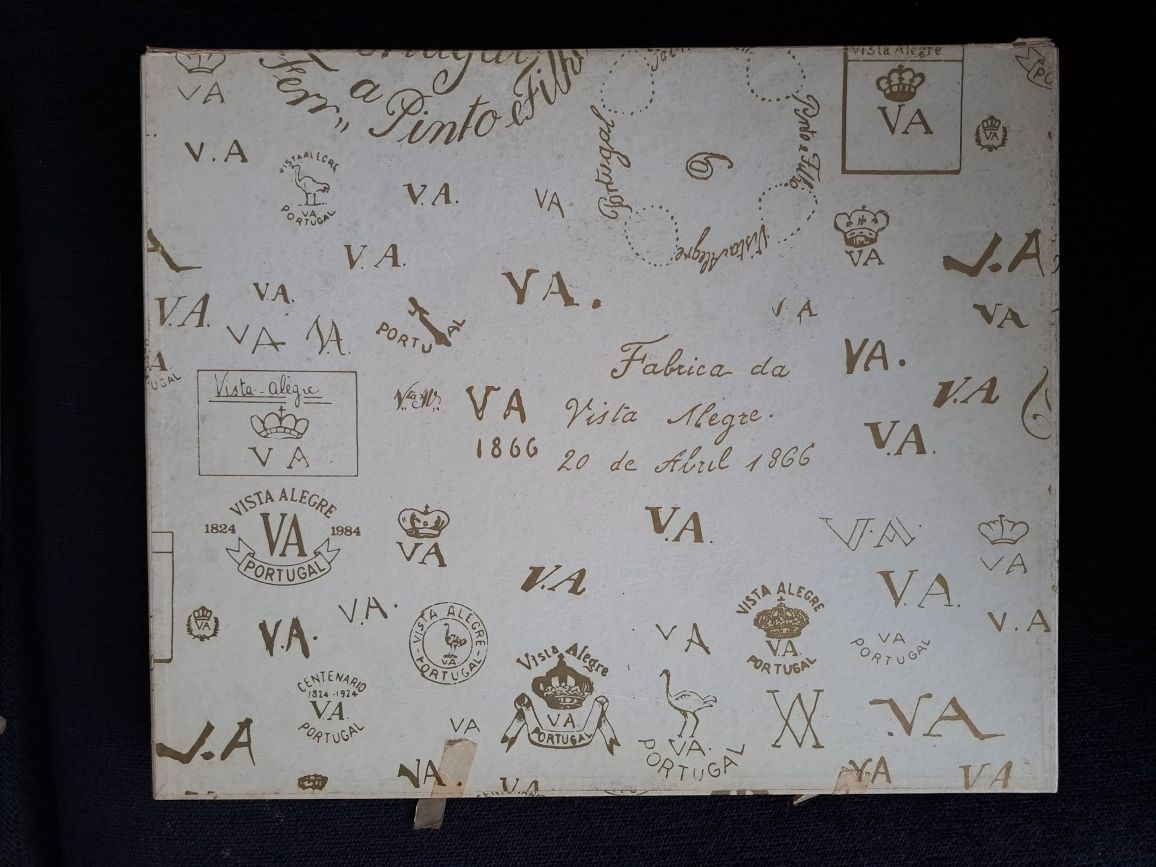 VA
Ferr,,
a
Pinto e Filho
Vista Alegre
VA
VA
V.A
VISTA ALEGRE
V.A.
PORTUGAL
V.A.
VA
Portugal
6
Pinto e Filho
Vista Alegre
VA
V.A.
VA.
J.A
V.A.
VA.
VA
VA.
PORTUGAL
VA
VA
Fabrica da
VA.
Vista-alegre
VA
VA
1866
Vista Alegre.
20 de Abril 1866
V.A
V.A.
VISTA ALEGRE
1824 VA 1984
PORTUGAL
VA
V.A.
V.A.
VA
V.A
V.A.
VA
V.A.
V.A.
VISTA ALEGRE
VA
PORTUGAL
VA
VISTA ALEGRE
V.A.
PORTUGAL
VA
PORTUGAL
V.A
CENTENARIO
1824-1924
V.A.
PORTUGAL
Vista Alegre
V.A.
PORTUGAL
VA.
PORTUGAL
VA
VA
J.A
VA
VA.
VA
VA
VA